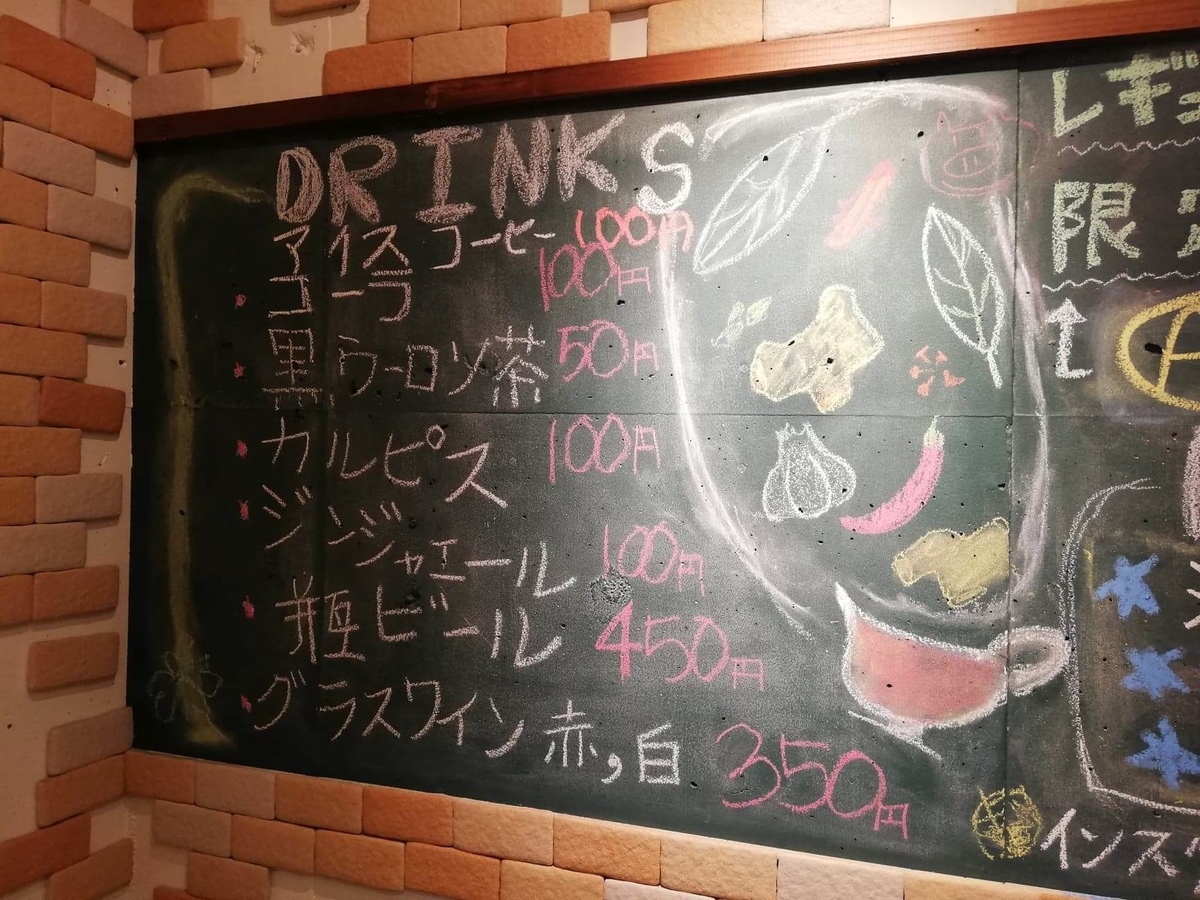 DRINKS
アイスコーヒー 100円
コーラ 100円
黒ウーロン茶 50円
カルピス 100円
ジンジャエール 100円
瓶ビール 450円
グラスワイン 赤,白 350円
レギュ
限
インス